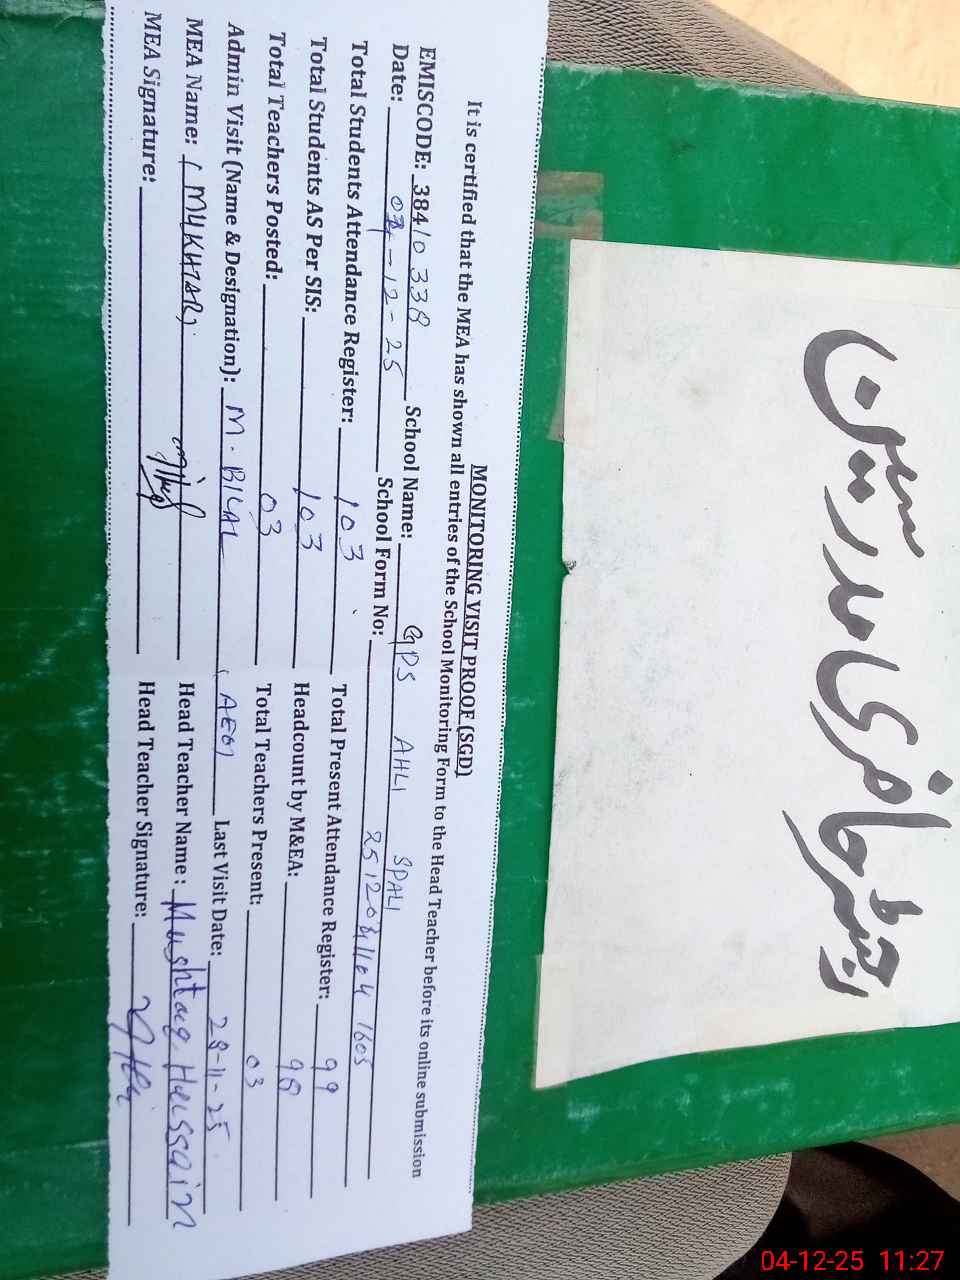 MONITORING VISIT PROOF (SGD)
It is certified that the MEA has shown all entries of the School Monitoring Form to the Head Teacher before its online submission
EMISCODE: 38410338 School Name: GPS AHLI SPALI
Date: 04-12-25 School Form No: 
Total Students Attendance Register: 103 Total Present Attendance Register: 99
Total Students AS Per SIS: 103 Headcount by M&EA: 98
Total Teachers Posted: 03 Total Teachers Present: 03
Admin Visit (Name & Designation): M. BILAL (AEO) Last Visit Date: 28-11-25
MEA Name: (MUKHTAR) Head Teacher Name: Mushtaq Hussain
MEA Signature: Head Teacher Signature:
رجسٹر حاضری مدرسین
04-12-25 11:27